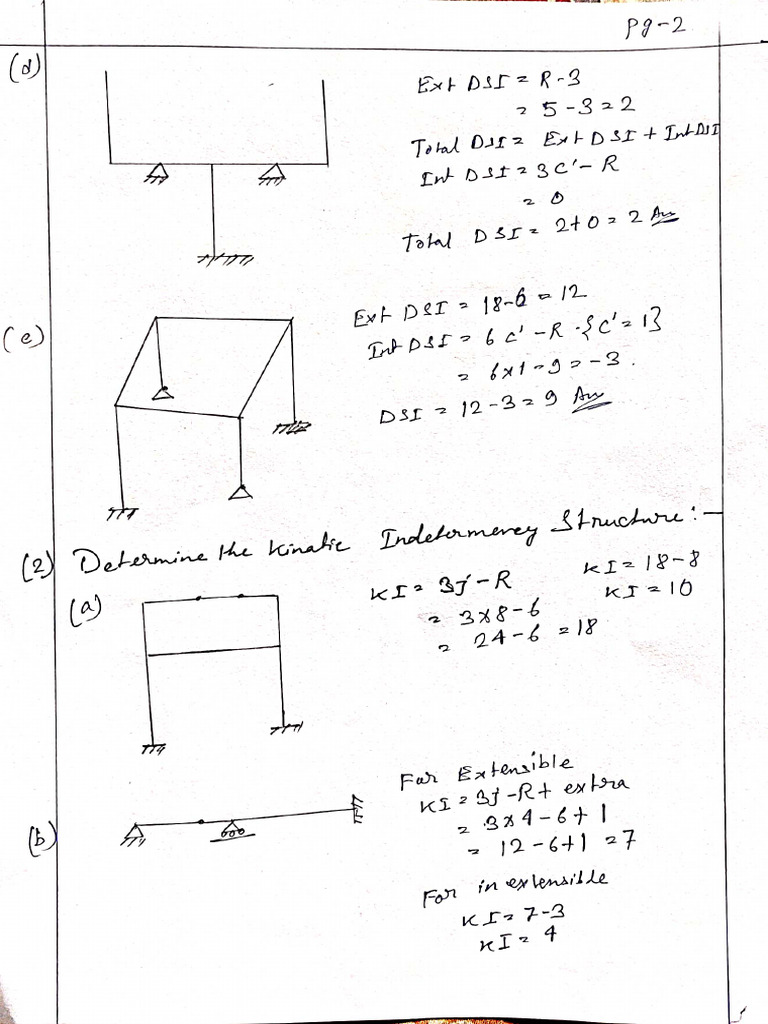 Pg-2
(d)
Ext DSI = R-3
= 5-3=2
Total DSI = Ext DSI + Int DSI
Int DSI = 3c'-R
= 0
Total DSI = 2+0=2 Ans
(e)
Ext DSI = 18-6=12
Int DSI = 6c'-R.{c'=1}
= 6x1-9=-3.
DSI = 12-3=9 Ans
(2) Determine the Kinatic Indetermency Structure:-
(a)
KI = 3j-R
= 3x8-6
= 24-6 =18
KI = 18-8
KI = 10
(b)
For Extensible
KI = 3j-R+ extra
= 3x4-6+1
= 12-6+1 =7
For in extensible
KI = 7-3
KI = 4